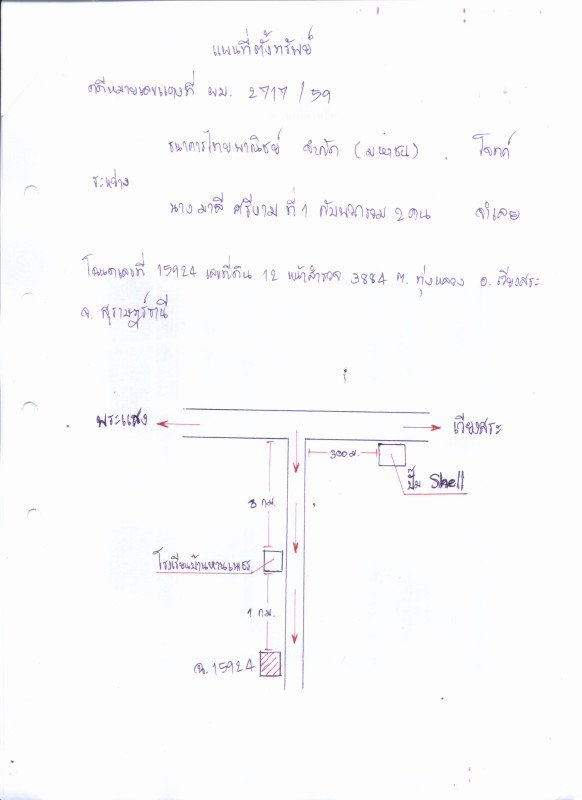 แผนที่ตั้งทรัพย์
คดีหมายเลขแดงที่ ผบ. 2717/59
ธนาคารไทยพาณิชย์ จำกัด (มหาชน) โจทก์
ระหว่าง
นางมาลี ศรีงาม ที่ 1 กับพวกรวม 2 คน จำเลย
โฉนดเลขที่ 15924 เลขที่ดิน 12 หน้าสำรวจ 3884 ต. ทุ่งหลวง อ. เวียงสระ
จ. สุราษฎร์ธานี
พระแสง
เวียงสระ
300 ม.
ปั๊ม Shell
3 กม.
โรงเรียนบ้านหานเพชร
1 กม.
ฉ. 15924